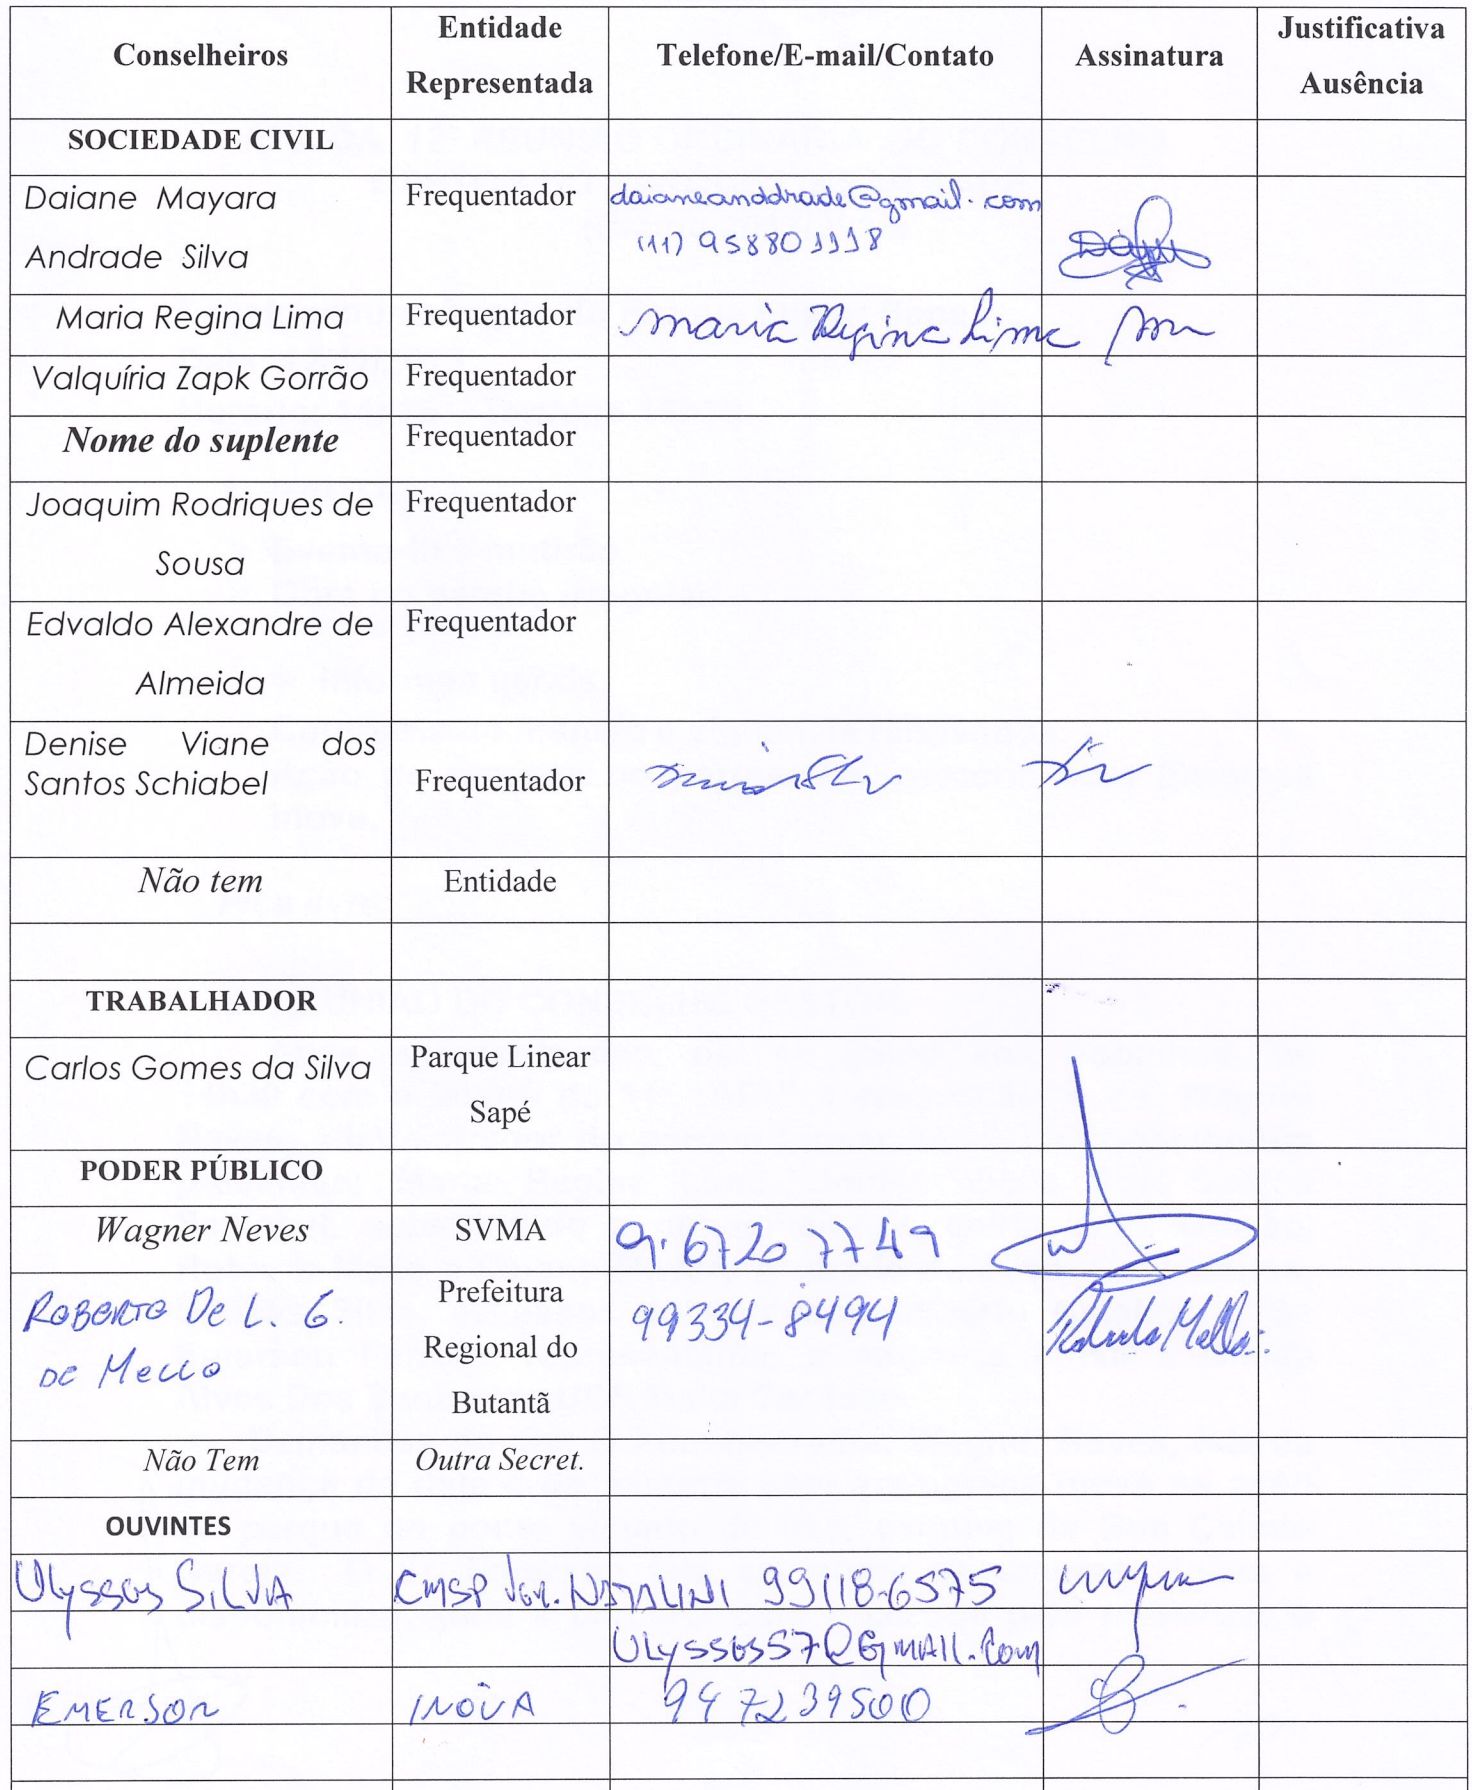 Conselheiros
Entidade
Representada
Telefone/E-mail/Contato
Assinatura
Justificativa
Ausência
SOCIEDADE CIVIL
Daiane Mayara
Andrade Silva
Frequentador
daianeanddrade@gmail.com
(11) 958801118
Maria Regina Lima
Frequentador
Maria Regina Lima
Valquíria Zapk Gorrão
Frequentador
Nome do suplente
Frequentador
Joaquim Rodriques de
Sousa
Frequentador
Edvaldo Alexandre de
Almeida
Frequentador
Denise Viane dos
Santos Schiabel
Frequentador
Não tem
Entidade
TRABALHADOR
Carlos Gomes da Silva
Parque Linear
Sapé
PODER PÚBLICO
Wagner Neves
SVMA
9.6720 7749
ROBERTO De L. G.
DE Mello
Prefeitura
Regional do
Butantã
99334-8494
Roberto Mello
Não Tem
Outra Secret.
OUVINTES
Ulysses SILVA
CMSP Ver. NATALINI 99118-6575
Ulysses57@Gmail.com
EMERSON
INOVA
947239500